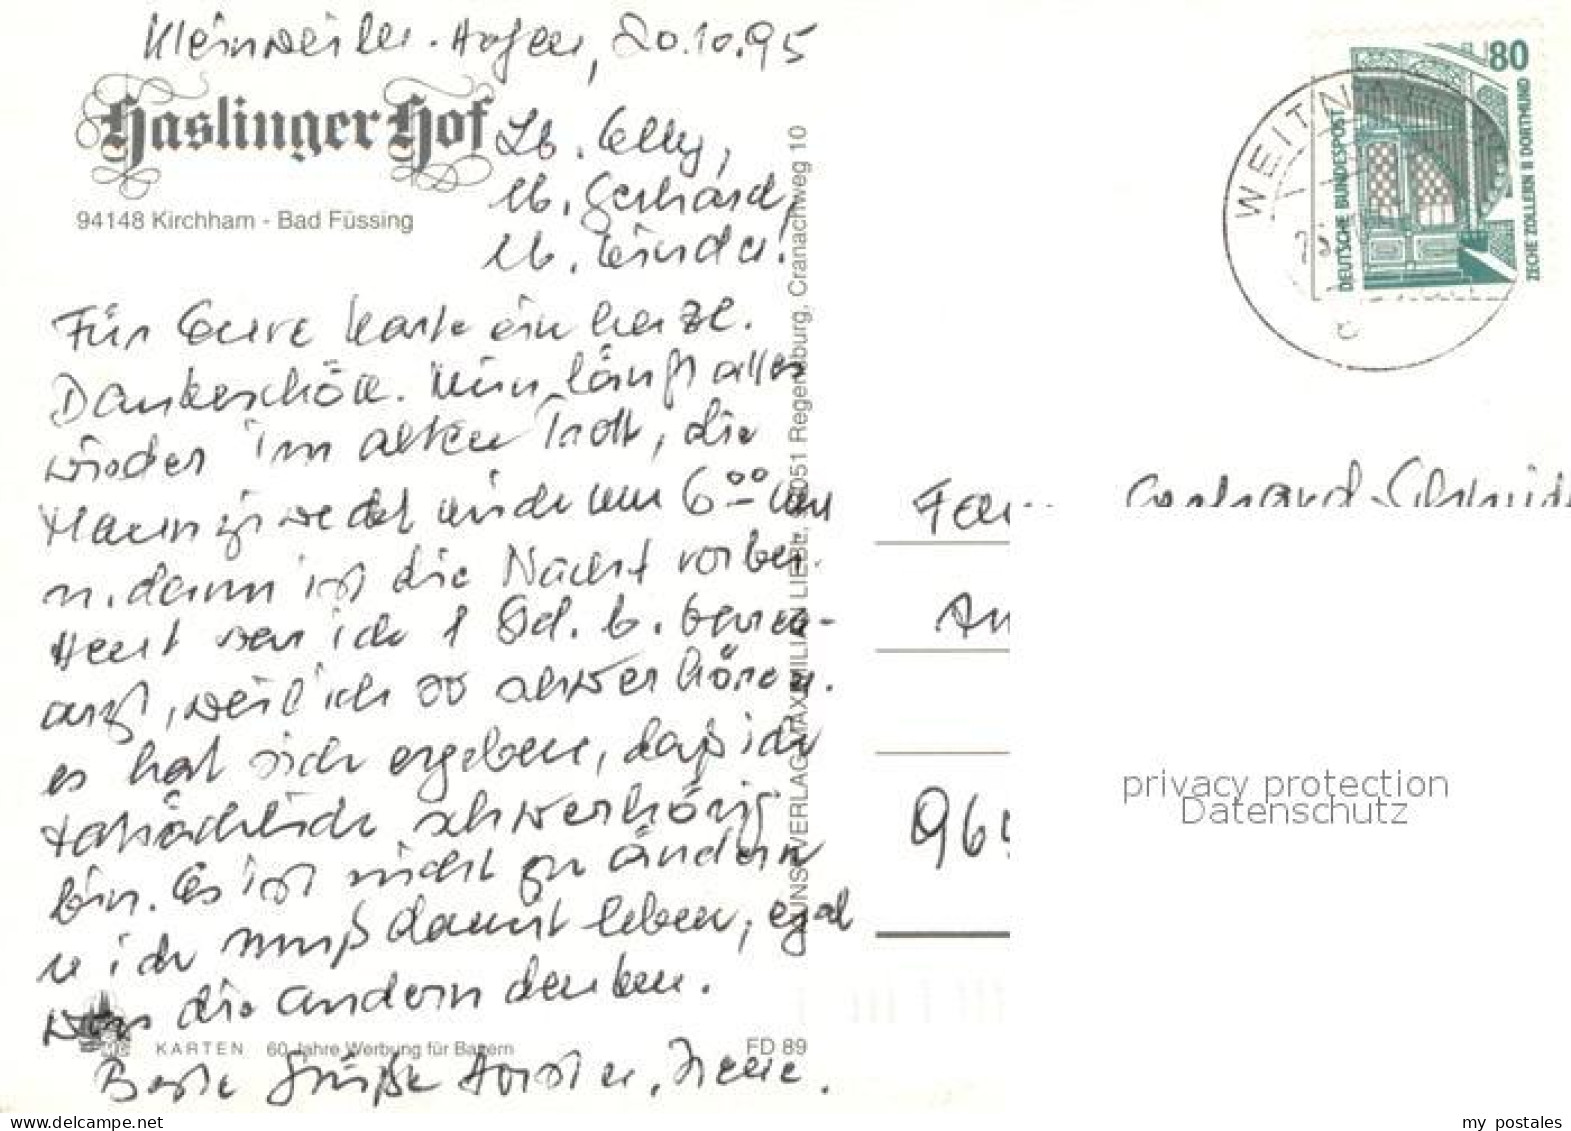 Kleinweiler-Hofen, 20.10.95
Haslinger Hof
94148 Kirchham - Bad Füssing
Lb. Elly,
lb. Gerhard,
lb. Linda!
Für Eure Karte ein herzl.
Dankeschön. Nun läuft alles
wieder im alten Trott, die
Mann weckt wieder um 6⁰⁰ Uhr
u. dann ist die Nacht vorbei.
Heut war ich 1 Std. b.
arzt, weil ich so schwer höre
es hat sich ergeben, daß ich
tatsächlich schwerhörig
bin. Es ist nicht zu ändern
u ich muß damit leben, egal
was die andern denken.
Beste Grüße Irene.
KARTEN 60 Jahre Werbung für Bayern
FD 89
KUNSTVERLAG MAXIMILIAN LIEBL, 93051 Regensburg, Cranachweg 10
80
DEUTSCHE BUNDESPOST
ZECHE ZOLLERN II DORTMUND
WEITNAU
Fam. Gerhard Schmidt
An
96
privacy protection
Datenschutz
www.delcampe.net
my_postales